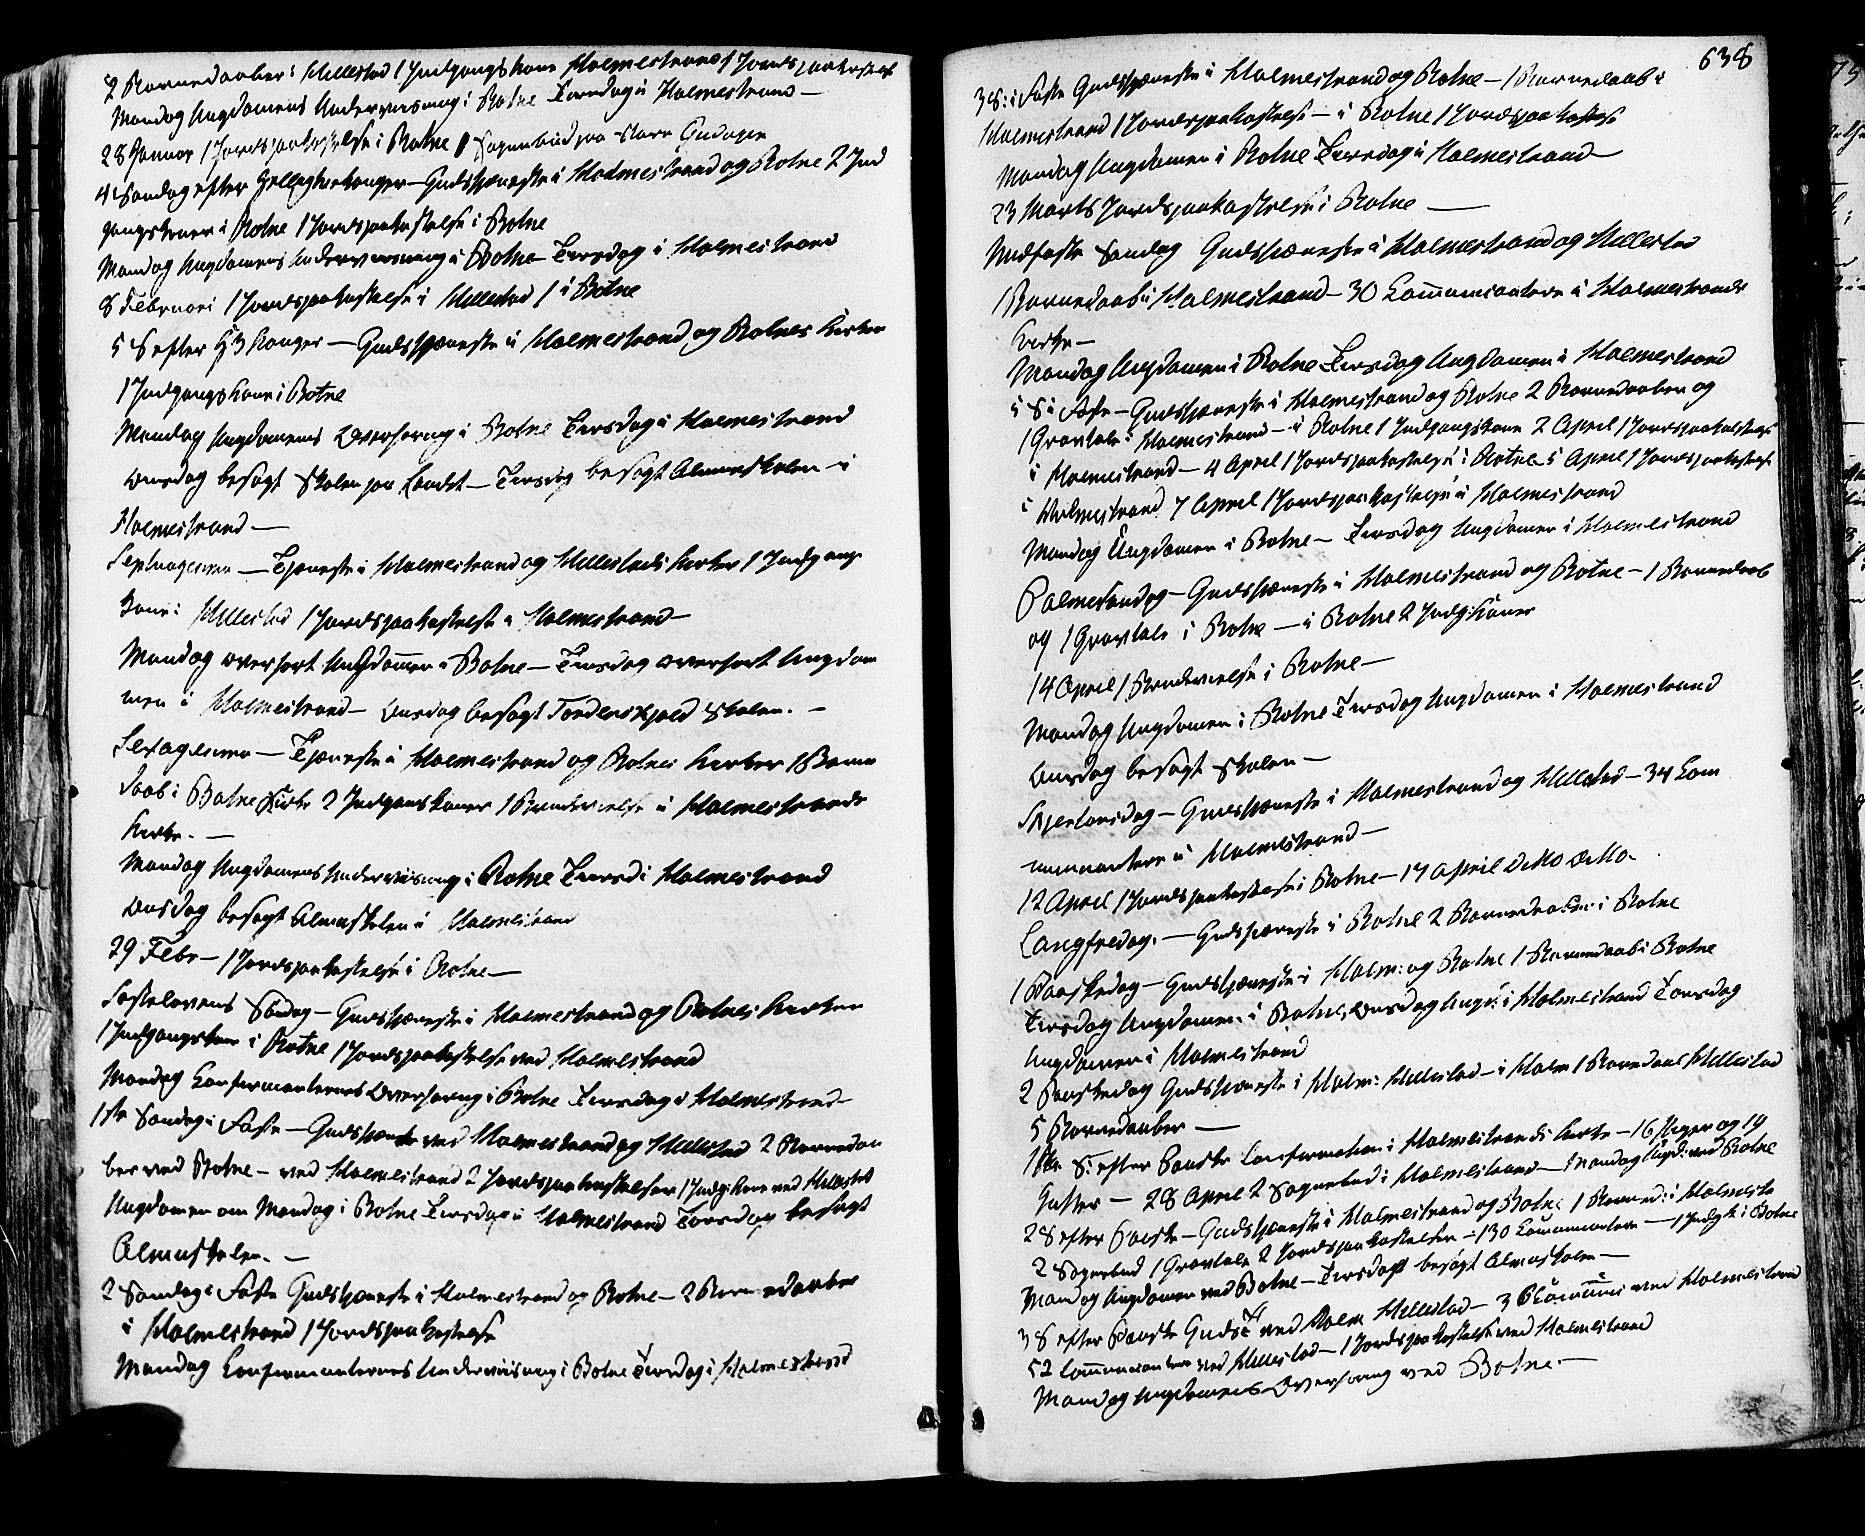 2 Barnedaaber i Hillestad 1 Indgangskone Holmestrand 1 Jordspaakastelse
Mandag Ungdomens Underviisning i Botne Tirsdag i Holmestrand —
28 Januar 1 Jordspaakastelse i Botne Sognebud paa Gudagen
4 Søndag efter Hellig tre konger — Gudstjeneste i Holmestrand og Botne 2 Ind
gangskoner i Botne 1 Jordspaakastelse i Botne
Mandag Ungdomens Underviisning i Botne Tirsdag i Holmestrand
8 Februari 1 Jordspaakastelse i Hillestad 1 i Botne
5 S efter H 3 Konger — Gudstjeneste i Holmestrand og Botnes Kirker
1 Indgangskone i Botne
Mandag Ungdomens Overhøring i Botne Tirsdag i Holmestrand
Onsdag besøgt Skolen paa Landet — Tirsdag besøgt Almueskolen i
Holmestrand —
Septuagesima — Tjeneste i Holmestrand og Hillestads Kirker 1 Indgangs
kone i Hillestad 1 Jordspaakastelse i Holmestrand —
Mandag overhørt Ungdommen i Botne — Tirsdag overhørt Ungdom
men i Holmestrand — Onsdag besøgt Tordenskjold Skolen. —
Sexagesima — Tjeneste i Holmestrand og Botnes Kirker 1 Barne
daab i Botne Kirke 2 Indgangskoner 1 Brudevielse i Holmestrands
Kirke. —
Mandag Ungdomens Underviisning i Botne Tirsd i Holmestrand
Onsdag besøgt Almueskolen i Holmestrand
29 Febr — 1 Jordspaakastelse i Botne —
Fastelavens Søndag — Gudstjeneste i Holmestrand og Botnes Kirker
1 Indgangskone i Botne 1 Jordspaakastelse ved Holmestrand
Mandag Confirmanternes Overhøring i Botne Tirsdag i Holmestrand
1ste Søndag i Faste — Gudstjeneste ved Holmestrand og Hillestad 2 Barnedaa
ber ved Botne — ved Holmestrand 2 Jordspaakastelser 1 Indg: Kone ved Hillestad
Ungdomen om Mandag i Botne Tirsdag i Holmestrand Torsdag besøgt
Almueskolen. —
2 Søndag i Faste Gudstjeneste i Holmestrand og Botne — 2 Barnedaaber
i Holmestrand 1 Jordspaakastelse
Mandag Confirmanternes Underviisning i Botne Tirsdag i Holmestrand
638
3 S: i Faste Gudstjeneste i Holmestrand og Botne — 1 Barnedaab i
Holmestrand 1 Jordspaakastelse — i Botne 1 Jordspaakastelse
Mandag Ungdomen i Botne Tirsdag i Holmestrand —
23 Marts Jordspaakastelse i Botne —
Midfaste Søndag Gudstjeneste i Holmestrand og Hillestad
1 Barnedaab i Holmestrand — 30 Communicantere i Holmestrands
Kirke —
Mandag Ungdomen i Botne Tirsdag Ungdomen i Holmestrand
5 S i Faste — Gudstjeneste i Holmestrand og Botne 2 Barnedaaber og
1 Gravtale i Holmestrand — i Botne 1 Indgangskone 2 April 1 Jordspaakastelse
i Holmestrand — 4 April 1 Jordspaakastelse i Botne 5 April 1 Jordspaakastelse
i Holmestrand 7 April 1 Jordspaakastelse i Holmestrand
Mandag Ungdomen i Botne — Tirsdag Ungdomen i Holmestrand
Palmesøndag — Gudstjeneste i Holmestrand og Botne — 1 Barnedaab
og 1 Gravtale i Botne — i Botne 2 Indg: Koner
14 April 1 Brudevielse i Botne —
Mandag Ungdomen i Botne Tirsdag Ungdomen i Holmestrand
Onsdag besøgt Skolen —
Skjertorsdag — Gudstjeneste i Holmestrand og Hillestad — 34 Com
municantere i Holmestrand —
12 April 1 Jordspaakastelse i Botne — 17 April ditto ditto.
Langfredag. — Gudstjeneste i Botne 2 Barnedaaber i Botne
1 Paaskedag — Gudstjeneste i Holm: og Botne 1 Barnedaab i Botne
Tirsdag Ungdomen i Botne, Onsdag Ungd: i Holmestrand Torsdag
Ungdomen i Holmestrand
2 Paaskedag Gudstjeneste i Holm: Hillestad — i Holm 1 Barnedaab Hillestad
5 Barnedaaber —
1ste S: efter Paaske Confirmation i Holmestrands Kirke — 16 Piger og 19
Gutter — 28 April 2 Sognebud i Holmestrand — Mandag Ungd: ved Botne
2 S efter Paaske — Gudstjeneste i Holmestrand og Botne 1 Barned: i Holmestr
2 Sognebud 1 Gravtale 2 Jordspaakastelser — 130 Communicantere — 1 Indg k i Botne
Mandag Ungdomen ved Botne — Tirsdag besøgt Almueskolen —
3 S efter Paaske Guds T ved Holm Hillestad — 3 ved Holmestrand
52 Communicantere ved Hillestad — 1 Jordspaakastelse ved Holmestrand
Mandag Ungdomens Overhøring ved Botne. —